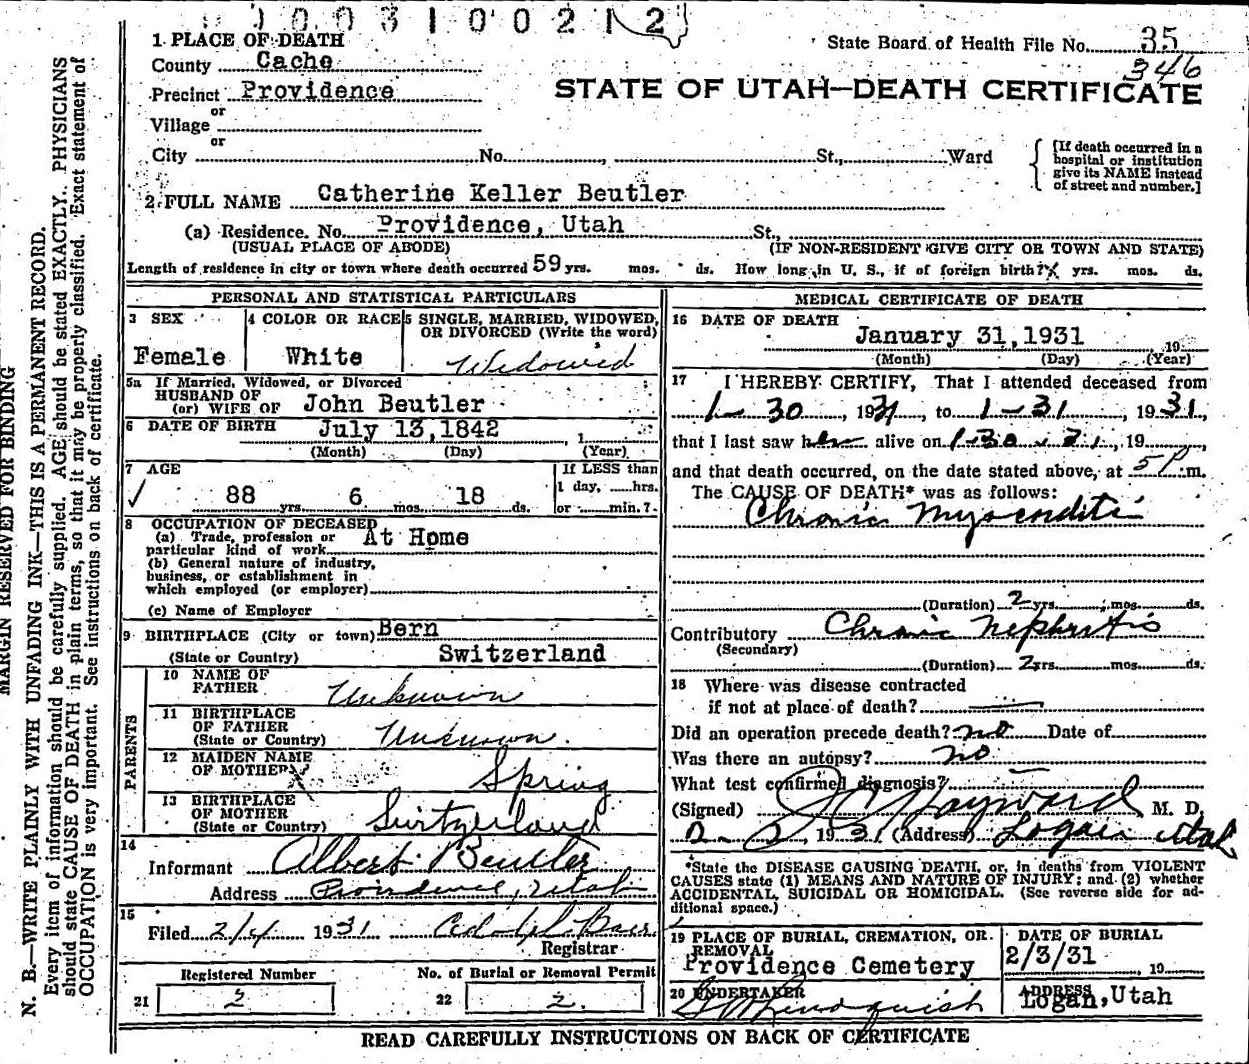 0 0 0 3 1 0 0 2 1 2
1 PLACE OF DEATH
State Board of Health File No. 35
346
County Cache
STATE OF UTAH—DEATH CERTIFICATE
Precinct Providence
or
Village
or
City No. , St., Ward
[If death occurred in a
hospital or institution
give its NAME instead
of street and number.]
2 FULL NAME Catherine Keller Beutler
(a) Residence. No. Providence, Utah St.,
(USUAL PLACE OF ABODE) (IF NON-RESIDENT GIVE CITY OR TOWN AND STATE)
Length of residence in city or town where death occurred 59 yrs. mos. ds. How long in U. S., if of foreign birth? yrs. mos. ds.
PERSONAL AND STATISTICAL PARTICULARS
3 SEX
Female
4 COLOR OR RACE
White
5 SINGLE, MARRIED, WIDOWED,
OR DIVORCED (Write the word)
Widowed
5a If Married, Widowed, or Divorced
HUSBAND OF
(or) WIFE OF John Beutler
6 DATE OF BIRTH July 13,1842 , 1
(Month) (Day) (Year)
7 AGE
If LESS than
1 day, hrs.
or min.?
✓ 88 yrs. 6 mos. 18 ds.
8 OCCUPATION OF DECEASED
(a) Trade, profession or
particular kind of work At Home
(b) General nature of industry,
business, or establishment in
which employed (or employer)
(c) Name of Employer
9 BIRTHPLACE (City or town) Bern
(State or Country) Switzerland
PARENTS
10 NAME OF
FATHER Unknown
11 BIRTHPLACE
OF FATHER
(State or Country) Unknown.
12 MAIDEN NAME
OF MOTHER Spring
13 BIRTHPLACE
OF MOTHER
(State or Country) Switzerland
14
Informant Albert Beutler
Address Providence, Utah
15
Filed 2/4 1931
Registrar
Registered Number
21 2
No. of Burial or Removal Permit
22 2.
MEDICAL CERTIFICATE OF DEATH
16 DATE OF DEATH
January 31,1931 19
(Month) (Day) (Year)
17 I HEREBY CERTIFY, That I attended deceased from
1-30, 1931 to 1-31, 1931,
that I last saw her alive on 1-30-31, 19
and that death occurred, on the date stated above, at 5 P.m.
The CAUSE OF DEATH* was as follows:
Chronic Myocarditis
(Duration) 2 yrs. mos. ds.
Contributory Chronic Nephritis
(Secondary)
(Duration) 2 yrs. mos. ds.
18 Where was disease contracted
if not at place of death? —
Did an operation precede death? no Date of
Was there an autopsy? no
What test confirmed diagnosis? —
(Signed) J C Hayward M. D.
2-2, 1931 (Address) Logan Utah
*State the DISEASE CAUSING DEATH, or, in deaths from VIOLENT
CAUSES state (1) MEANS AND NATURE OF INJURY; and (2) whether
ACCIDENTAL, SUICIDAL OR HOMICIDAL. (See reverse side for ad-
ditional space.)
19 PLACE OF BURIAL, CREMATION, OR
REMOVAL
Providence Cemetery
DATE OF BURIAL
2/3/31, 19
20 UNDERTAKER
Lindquist
ADDRESS
Logan, Utah
READ CAREFULLY INSTRUCTIONS ON BACK OF CERTIFICATE
MARGIN RESERVED FOR BINDING
N. B.—WRITE PLAINLY WITH UNFADING INK—THIS IS A PERMANENT RECORD.
Every item of information should be carefully supplied. AGE should be stated EXACTLY. PHYSICIANS
should state CAUSE OF DEATH in plain terms, so that it may be properly classified. Exact statement of
OCCUPATION is very important. See instructions on back of certificate.